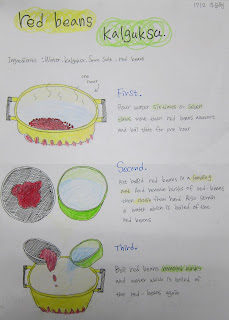 red beans
kalguksu.
Ingredients : Water, kalguksu, Some Salt, red beans
First.
Pour water six-times or seven
times more than red beans amount
and boil state for one hour
Second.
Put boiled red beans in a
and remove husks of red-beans
then them from hand. Also
water which is boiled of the
red beans
Third.
Boil red beans
and water which is boiled of
the red-beans again